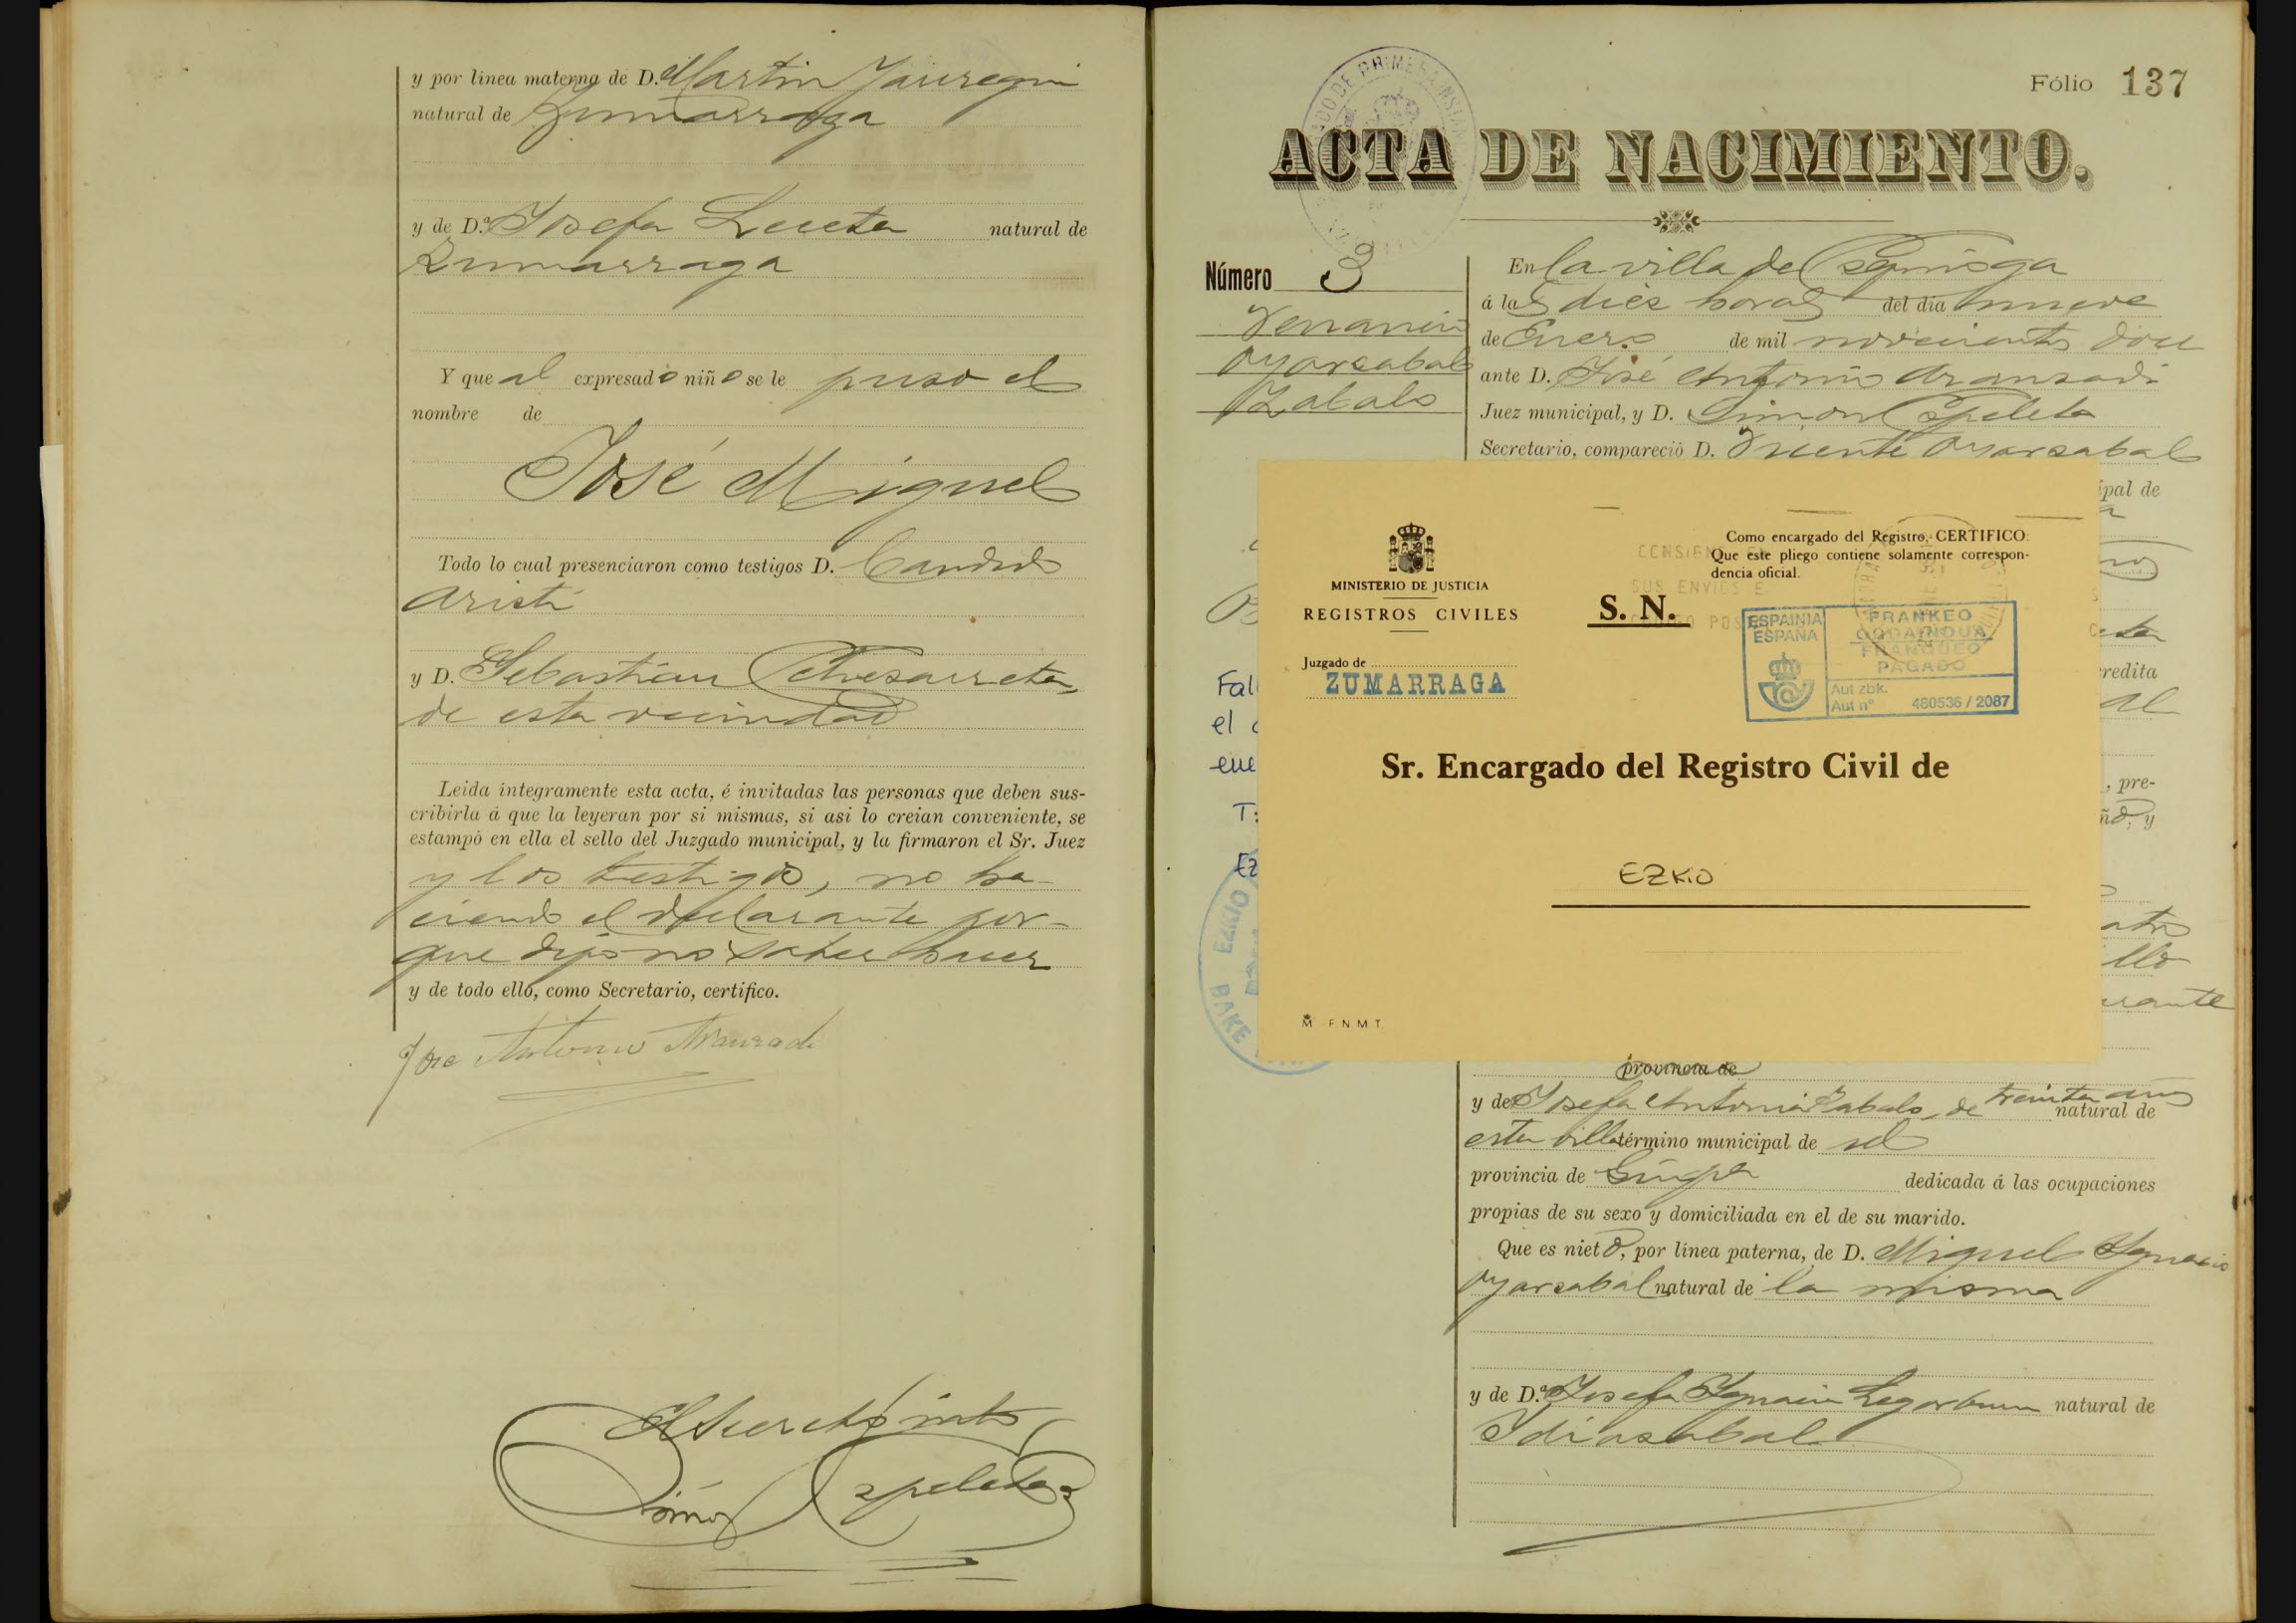 y por línea materna de D. Martin Jauregui
natural de Zumarraga
y de D.ª Josefa Lueta natural de
Zumarraga
Y que al expresado niño se le puso el
nombre de
José Miguel
Todo lo cual presenciaron como testigos D. Candido
Aristi
y D. Sebastián Echesarreta,
de esta vecindad
Leida íntegramente esta acta, é invitadas las personas que deben sus-
cribirla á que la leyeran por sí mismas, si así lo creían conveniente, se
estampó en ella el sello del Juzgado municipal, y la firmaron el Sr. Juez
y los testigos, no ha-
ciendo el declarante por-
que dijo no saber hacer
y de todo ello, como Secretario, certifico.
Jose Antonio Aranzadi
El Secretario
Simon Espeleta
Fólio 137
ACTA DE NACIMIENTO.
Número 3
Venancio
Oyarzabal
Zabalo
En la villa de Ezquioga
á las diez horas del día nueve
de Enero de mil novecientos doce
ante D. José Antonio Aranzadi
Juez municipal, y D. Simon Espeleta
Secretario, compareció D. Vicente Oyarzabal
ipal de
redita
al
, pre-
ño, y
llo
arante
Fal
el
ene
T:
Ez
EZKIO
BAKE
MINISTERIO DE JUSTICIA
REGISTROS CIVILES
Juzgado de
ZUMARRAGA
S. N.
Como encargado del Registro, CERTIFICO:
Que este pliego contiene solamente correspon-
dencia oficial.
ESPAINIA
ESPAÑA
FRANKEO
ORDAINDUA
FRANQUEO
PAGADO
Aut zbk.
Aut nº 460536 / 2087
Sr. Encargado del Registro Civil de
EZKIO
F N M T
provincia de
y de Josefa Antonia Zabalo, de treinta años natural de
esta villa término municipal de id
provincia de Guipa dedicada á las ocupaciones
propias de su sexo y domiciliada en el de su marido.
Que es nieto, por línea paterna, de D. Miguel Ygnacio
Oyarzabal natural de la misma
y de D.ª Josefa Ygnacia Legorburu natural de
Idiazabal